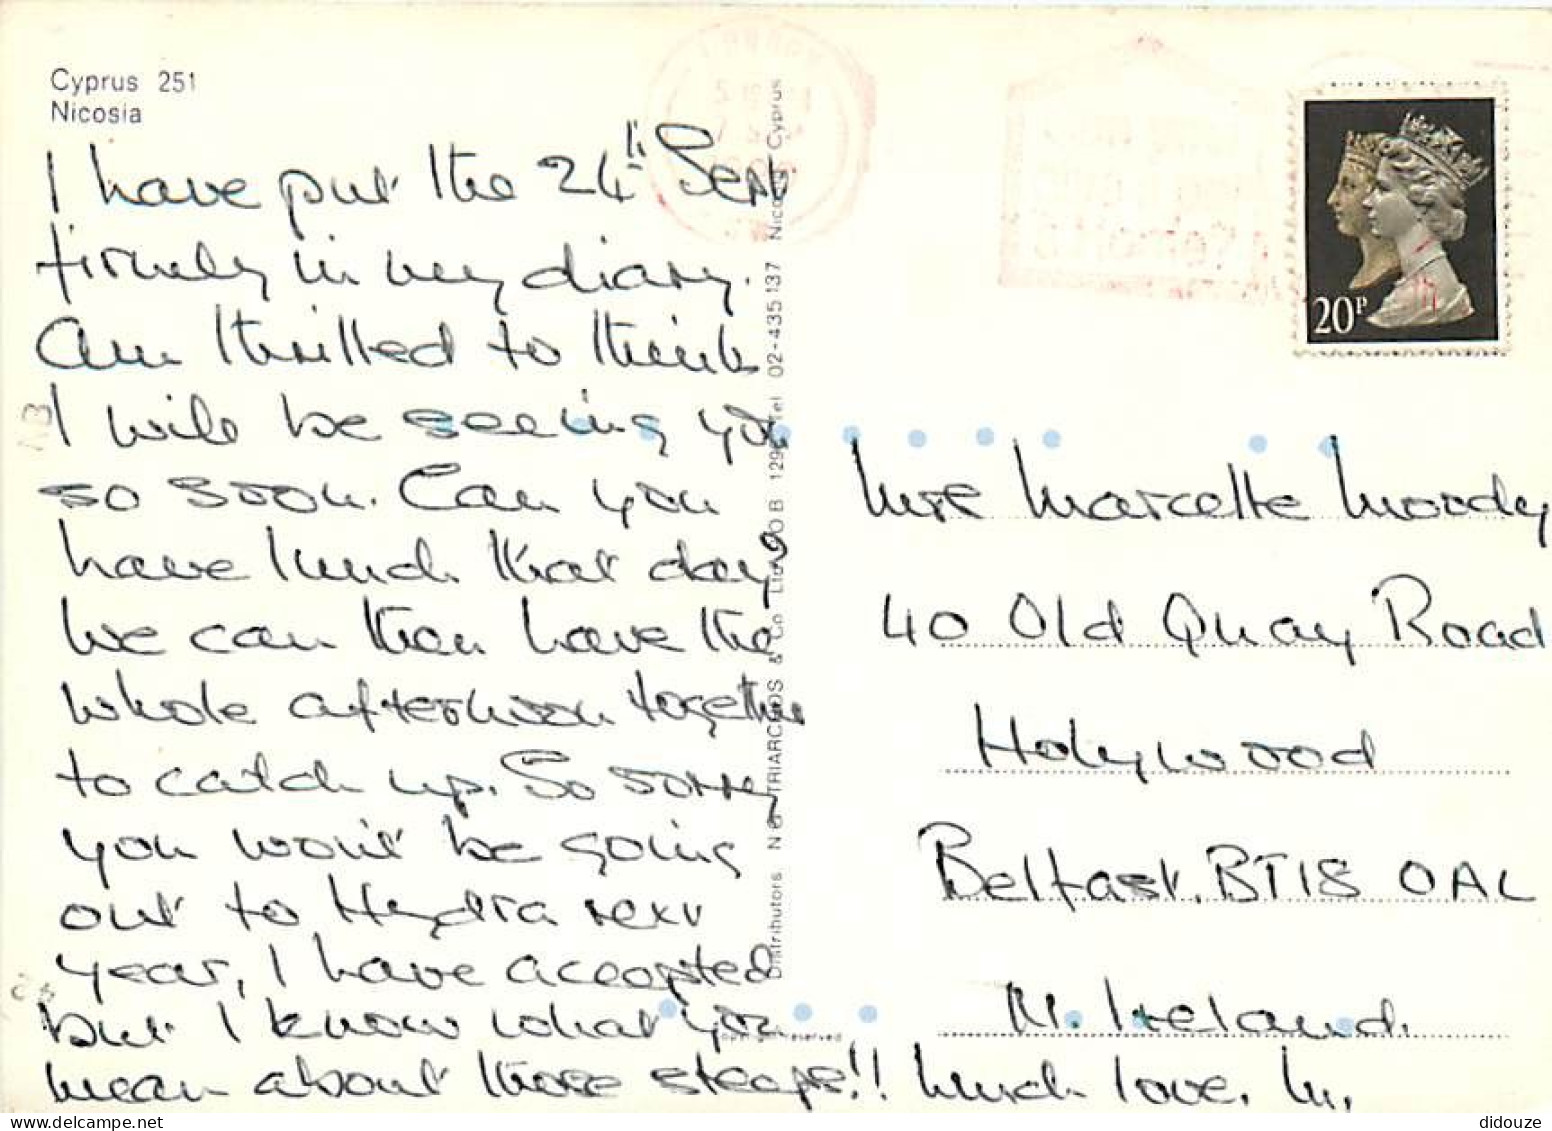 Cyprus 251
Nicosia
I have put the 24th Sept
firmly in my diary.
Am thrilled to think
I will be seeing you
so soon. Can you
have lunch that day?
We can then have the
whole afternoon together
to catch up. So sorry
you won't be going
out to Hydra next
year, I have accepted
but I know what you
mean about those steps!! Much love, M.
Distributors. TRIARCHOS & Co Ltd P O B 129 Tel 02-435137 Nicosia Cyprus
Copyright reserved
20P
Mrs Marcelle Moody
40 Old Quay Road
Holywood
Belfast. BT18 0AL
N. Ireland.
didouze